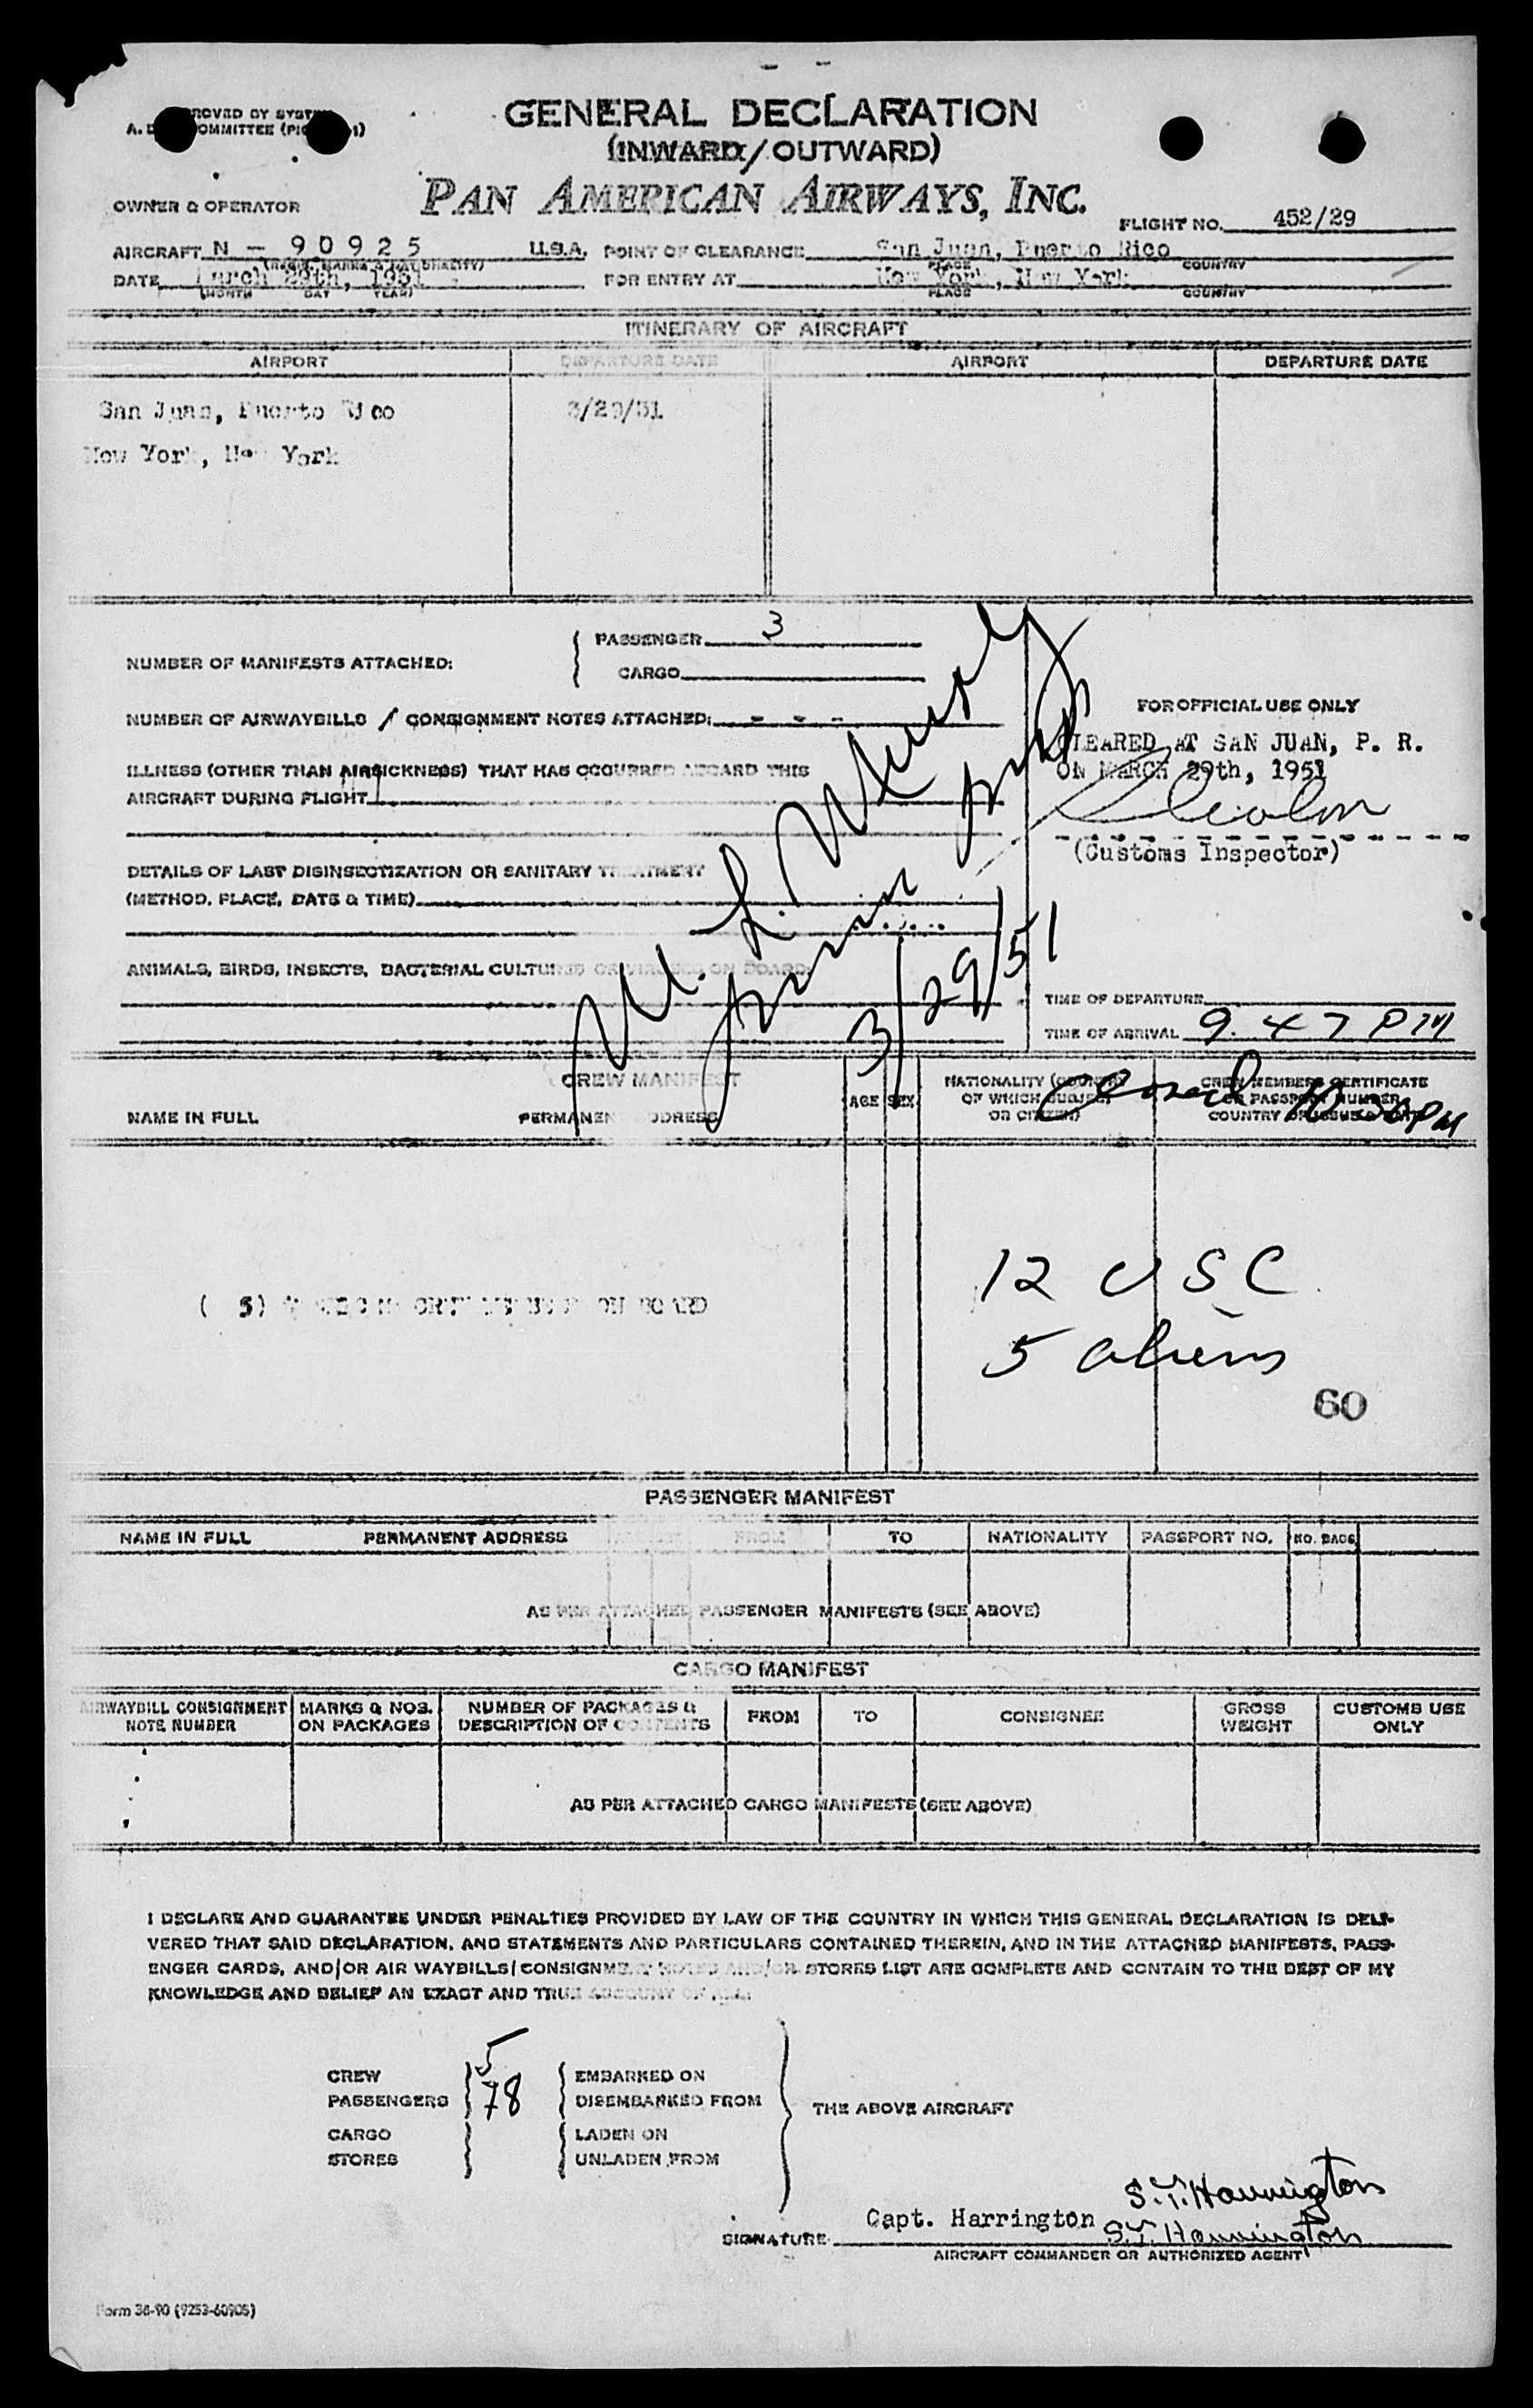 GENERAL DECLARATION
(INWARD/OUTWARD)
PAN AMERICAN AIRWAYS, INC.
OWNER & OPERATOR
FLIGHT NO. 452/29
AIRCRAFT N - 90925 U.S.A. POINT OF CLEARANCE San Juan, Puerto Rico
(REGIS. MARKS & NATIONALITY) PLACE COUNTRY
DATE March 29th, 1951 FOR ENTRY AT New York, New York
(MONTH DAY YEAR) PLACE COUNTRY
ITINERARY OF AIRCRAFT
AIRPORT DEPARTURE DATE AIRPORT DEPARTURE DATE
San Juan, Puerto Rico 3/29/51
New York, New York
PASSENGER 3
NUMBER OF MANIFESTS ATTACHED:
CARGO
NUMBER OF AIRWAYBILLS / CONSIGNMENT NOTES ATTACHED: - - -
ILLNESS (OTHER THAN AIRSICKNESS) THAT HAS OCCURRED ABOARD THIS
AIRCRAFT DURING FLIGHT
DETAILS OF LAST DISINSECTIZATION OR SANITARY TREATMENT
(METHOD, PLACE, DATE & TIME)
ANIMALS, BIRDS, INSECTS, BACTERIAL CULTURES OR VIRUSES ON BOARD:
M. L.
3/29/51
FOR OFFICIAL USE ONLY
CLEARED AT SAN JUAN, P. R.
ON MARCH 29th, 1951
(Customs Inspector)
TIME OF DEPARTURE
TIME OF ARRIVAL 9.47 PM
CREW MANIFEST
NAME IN FULL PERMANENT ADDRESS AGE SEX
NATIONALITY (COUNTRY
OF WHICH SUBJECT
OR CITIZEN)
CREW MEMBERS CERTIFICATE
OR PASSPORT NUMBER
COUNTRY OF ISSUE
PM
( 5) ON BOARD
12 USC
5 aliens
60
PASSENGER MANIFEST
NAME IN FULL PERMANENT ADDRESS FROM TO NATIONALITY PASSPORT NO. NO. BAGS
AS PER ATTACHED PASSENGER MANIFESTS (SEE ABOVE)
CARGO MANIFEST
AIRWAYBILL CONSIGNMENT
NOTE NUMBER
MARKS & NOS.
ON PACKAGES
NUMBER OF PACKAGES &
DESCRIPTION OF CONTENTS
FROM TO CONSIGNEE
GROSS
WEIGHT
CUSTOMS USE
ONLY
AS PER ATTACHED CARGO MANIFESTS (SEE ABOVE)
I DECLARE AND GUARANTEE UNDER PENALTIES PROVIDED BY LAW OF THE COUNTRY IN WHICH THIS GENERAL DECLARATION IS DELI-
VERED THAT SAID DECLARATION, AND STATEMENTS AND PARTICULARS CONTAINED THEREIN, AND IN THE ATTACHED MANIFESTS, PASS-
ENGER CARDS, AND/OR AIR WAYBILLS/CONSIGNMENT NOTES AND/OR STORES LIST ARE COMPLETE AND CONTAIN TO THE BEST OF MY
KNOWLEDGE AND BELIEF AN EXACT AND TRUE ACCOUNT OF ALL:
CREW 5 EMBARKED ON
PASSENGERS 78 DISEMBARKED FROM
THE ABOVE AIRCRAFT
CARGO LADEN ON
STORES UNLADEN FROM
S.T. Harrington
SIGNATURE Capt. Harrington S.T. Harrington
AIRCRAFT COMMANDER OR AUTHORIZED AGENT
Form 36-90 (9253-60905)